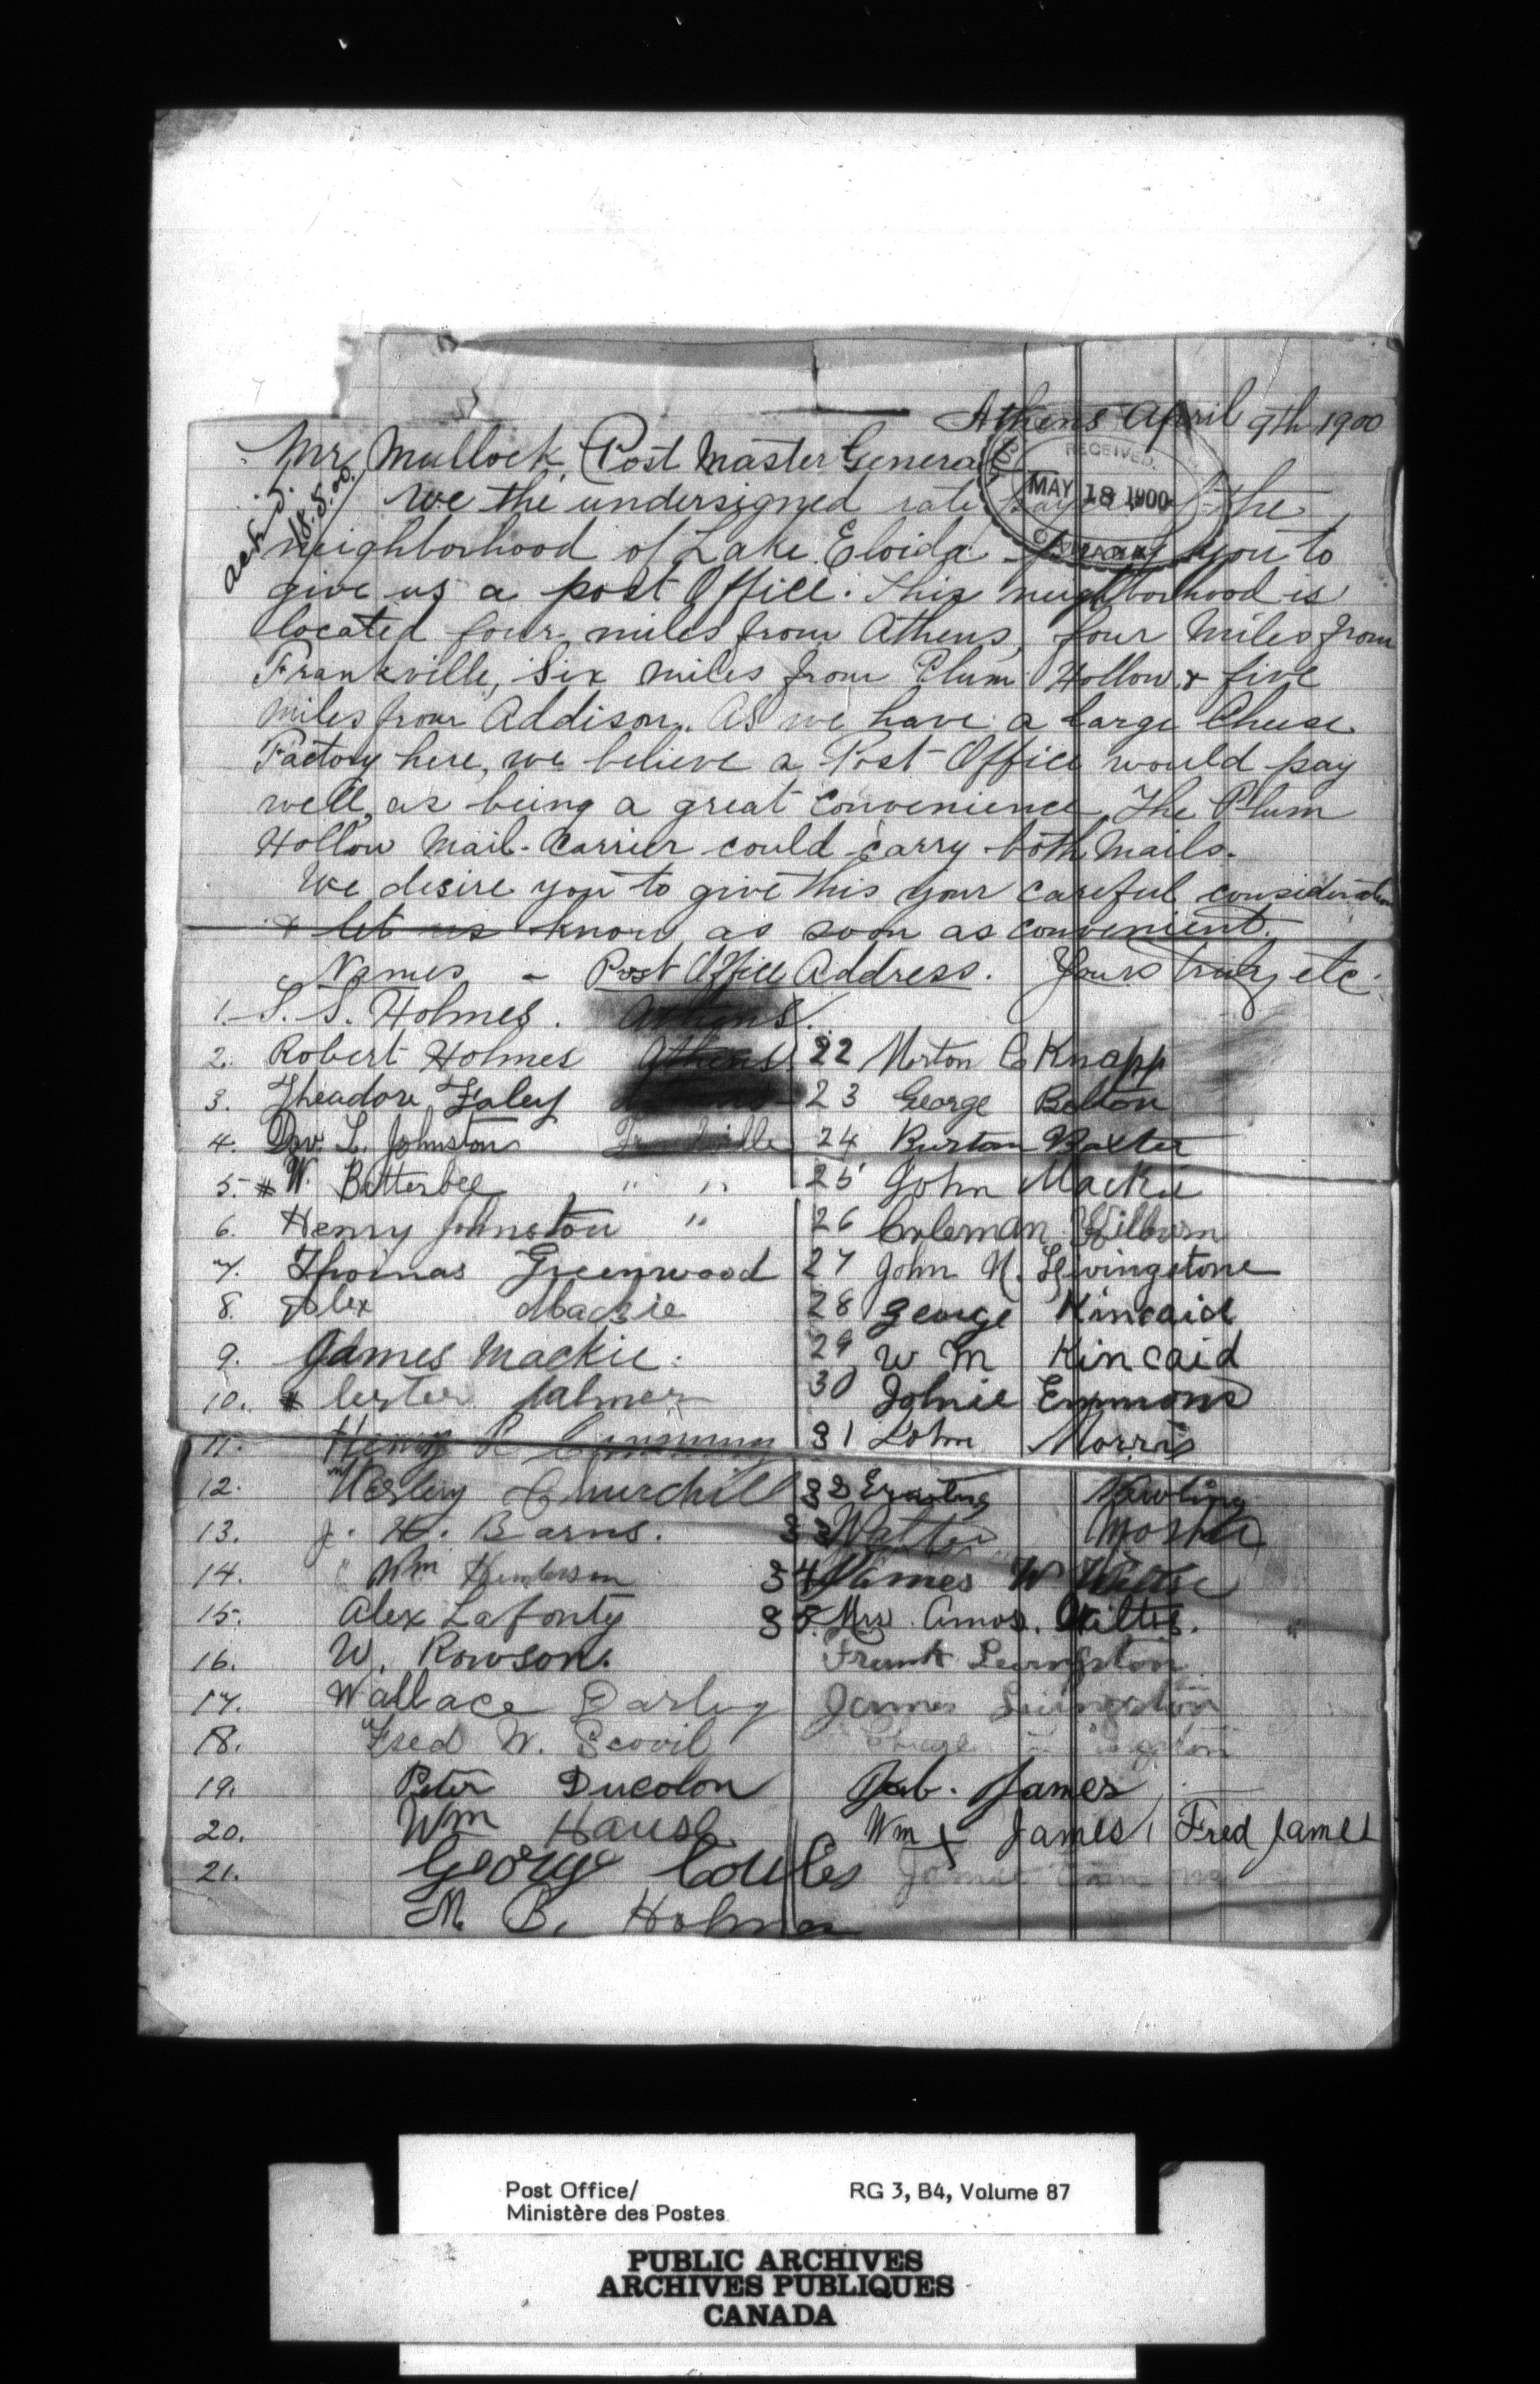 Athens April 9th 1900
Mr Mullock, Post Master General
ack'd.
18.5.00
RECEIVED.
MAY 18 1900
We the undersigned rate the
neighborhood of Lake Eloida you to
give us a post Office. This neighborhood is
located four miles from Athens, four miles from
Frankville, Six miles from Plum Hollow & five
miles from Addison. As we have a large Cheese
Factory here, we believe a Post Office would pay
well, as being a great convenience. The Plum
Hollow Mail-Carrier could carry both Mails.
We desire you to give this your careful consideration
& let us know as soon as convenient.
Names - Post Office Address. Yours truly etc.
1. S. S. Holmes. Athens.
2. Robert Holmes Athens 22 Morton C Knapp
3. Theadore Foley 23 George Bolton
4. L. Johnston 24 Burton Baxter
5. # W. Bitterbee " " 25 John Mackie
6. Henry Johnston " 26 Coleman Kilborn
7. Thomas Greenwood 27 John N. Livingstone
8. Alex Mackie 28 George Kincaid
9. James Mackie. 29 W M Kincaid
10. # Palmer 30 Johnie Emmons
11. Henry 31 John Morris
12. Wesley Churchill 32 Erastus
13. J. H. Barns. 33 Walter Mosher
14. Wm Henderson 34 James W Wiltse
15. Alex Lafonty 35. Mrs. Amos. Wiltse.
16. W. Rowson. Frank Livingston
17. Wallace Darling James Livingston
18. Fred W. Scovil
19. Peter Ducolon James
20. Wm Hause Wm X James, Fred James
21. George Cowles
M. B. Holmes
Post Office/ RG 3, B4, Volume 87
Ministère des Postes
PUBLIC ARCHIVES
ARCHIVES PUBLIQUES
CANADA